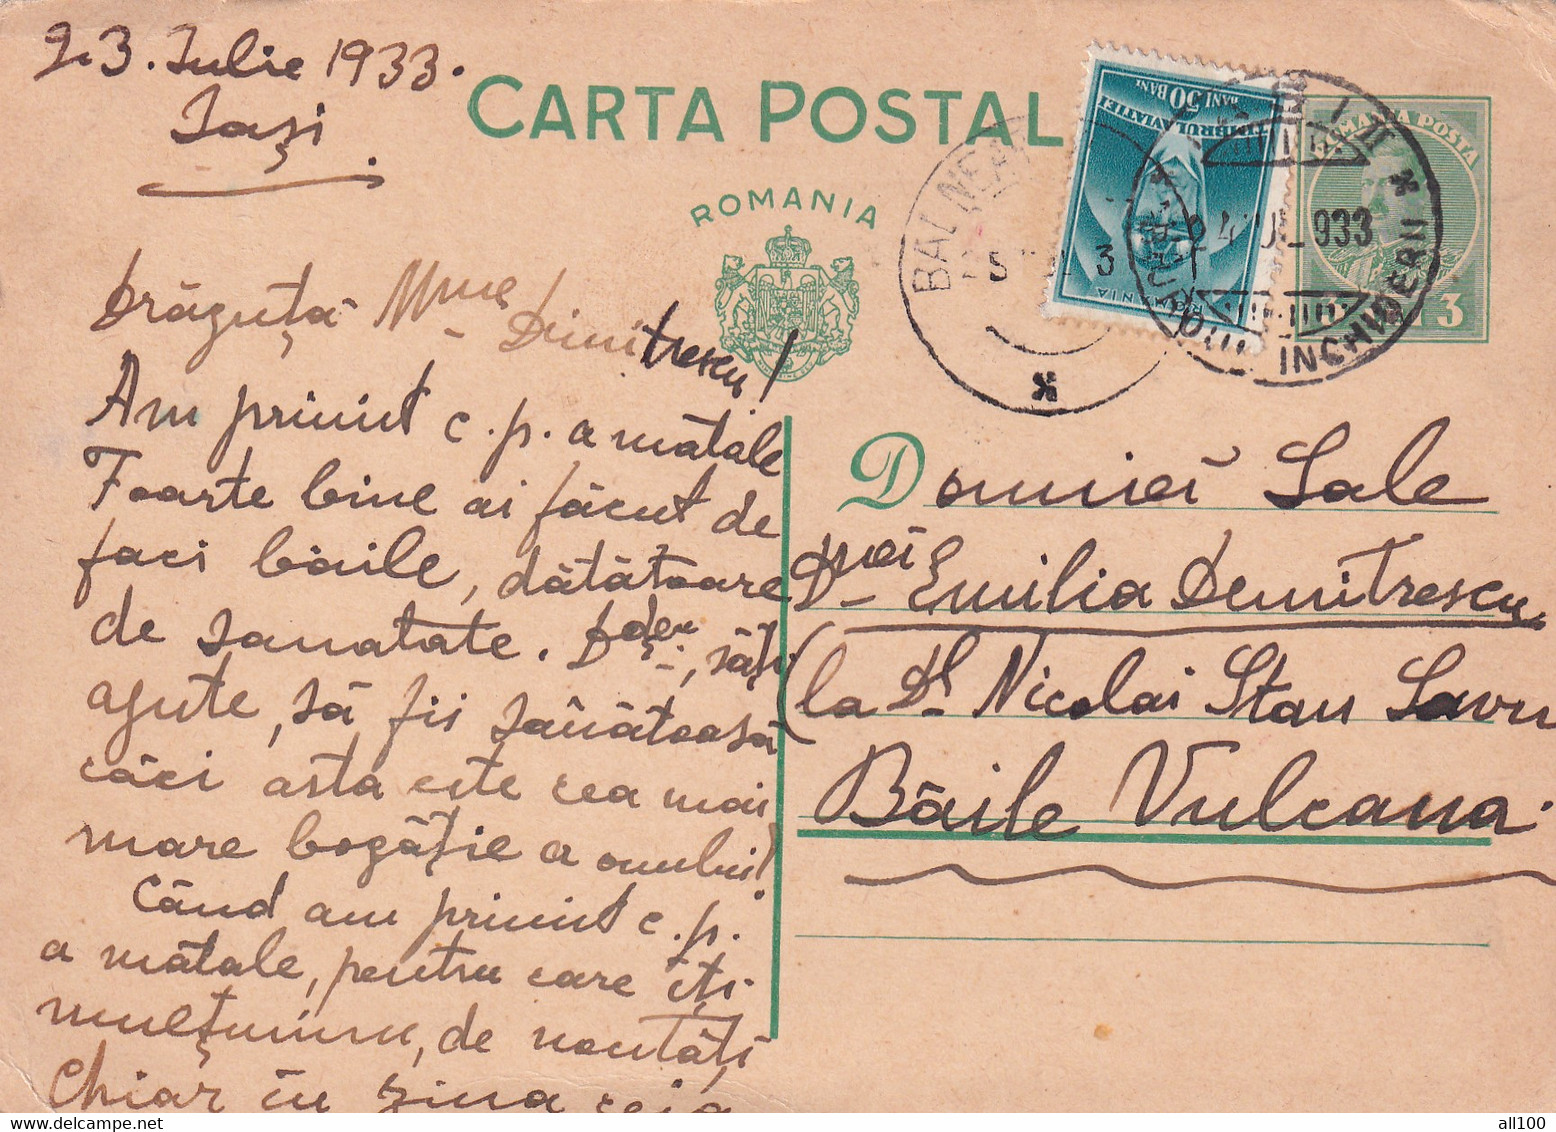 23. Iulie 1933.
Iași
CARTA POSTALA
ROMANIA
ROMANIA POSTA
3
TIMBRUL AVIATIEI
BANI 50 BANI
ROMANIA
BALNEAR
24 IUL 933
INCHIDERII
Drăguță Mme Dimitrescu!
Am primit c.p. a mătale
Foarte bine ai făcut de
faci băile, dătătoare
de sanatate. D-zeu, să-ți
ajute, să fii sănătoasă
căci asta este cea mai
mare bogăție a omului!
Când am primit c.p.
a mătale, pentru care îți
mulțumim, de noutăți
Chiar în ziua ceia
Domniei Sale
D-nei Emilia Demitrescu
(la Dl. Nicolai Stan Savu
Băile Vulcana.
delcampe.net
all100